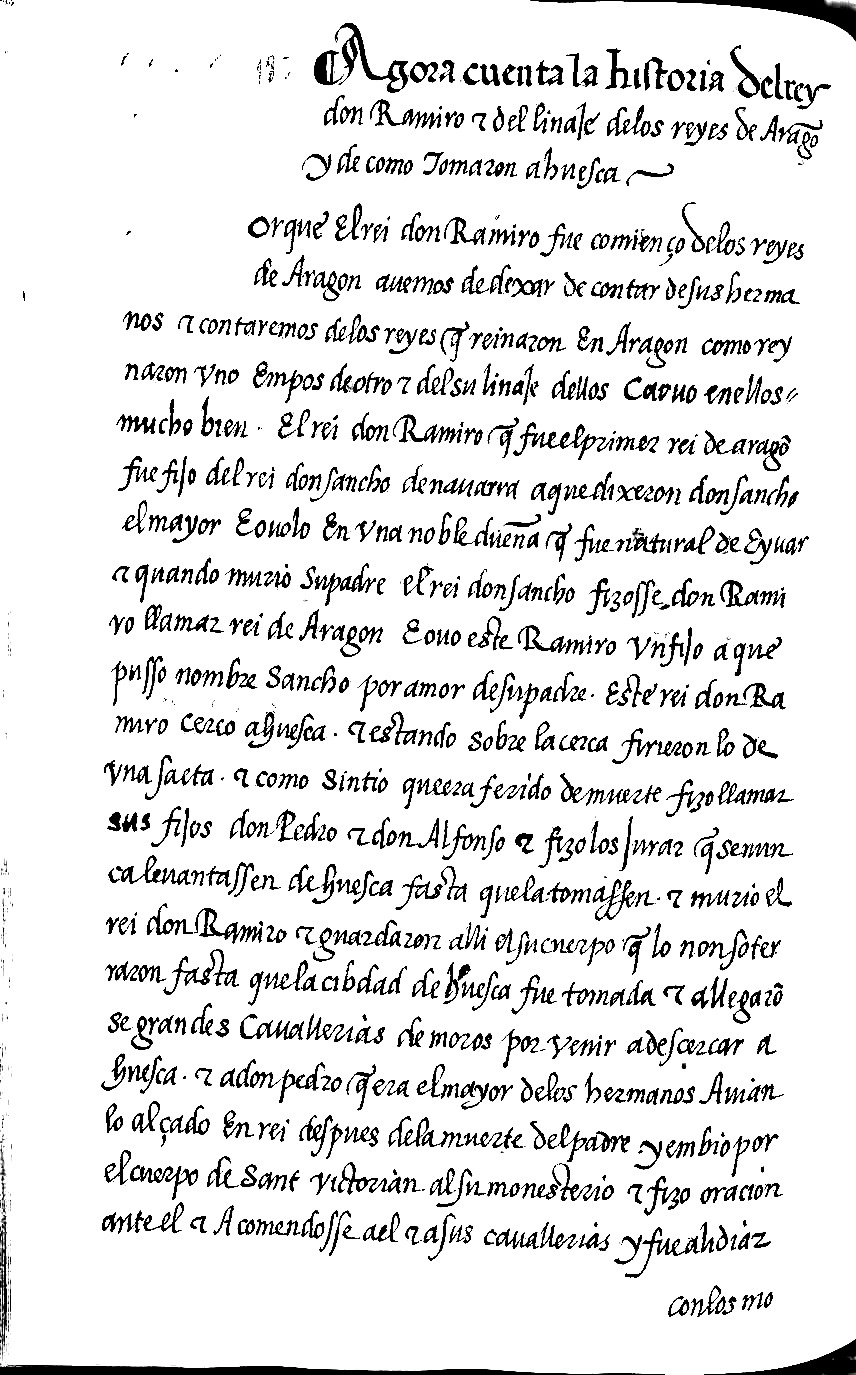 Agora cuenta la historia del rey
don Ramiro ⁊ del linaje delos reyes de Aragõ
y de como Tomaron a huesca
Orque El rei don Ramiro fue comienço delos reyes
de Aragon auemos de dexar de contar de sus herma
nos ⁊ contaremos delos reyes q̃ reinaron En Aragon como rey
naron vno Empos de otro ⁊ del su linaje dellos Ca ouo en ellos
mucho bien. El rei don Ramiro q̃ fue el primer rei de aragõ
fue fijo del rei don sancho de nauarra a que dixeron don sancho
el mayor E ouolo En vna noble dueña q̃ fue natural de Eyuar
⁊ quando murio Su padre el rei don sancho fizosse don Rami
ro llamar rei de Aragon E ouo este Ramiro vn fijo a que
pusso nombre Sancho por amor de su padre. Este rei don Ra
miro cerco a huesca. ⁊ estando sobre la cerca firieron lo de
vna saeta. ⁊ como Sintio que era ferido de muerte fizo llamar
sus fijos don Pedro ⁊ don Alfonso ⁊ fizo los Jurar q̃ se nun
ca leuantassen de huesca fasta que la tomassen. ⁊ murio el
rei don Ramiro ⁊ guardaron alli el su cuerpo q̃ lo non soter
raron fasta que la cibdad de huesca fue tomada ⁊ allegarõ
se grandes Cauallerias de moros por venir a descercar a
huesca. ⁊ a don pedro q̃ era el mayor delos hermanos Auian
lo alçado En rei despues dela muerte del padre y embio por
el cuerpo de Sant victorian al su monesterio ⁊ fizo oracion
ante el ⁊ Acomendosse a el ⁊ a sus cauallerias y fue a lidiar
con los mo